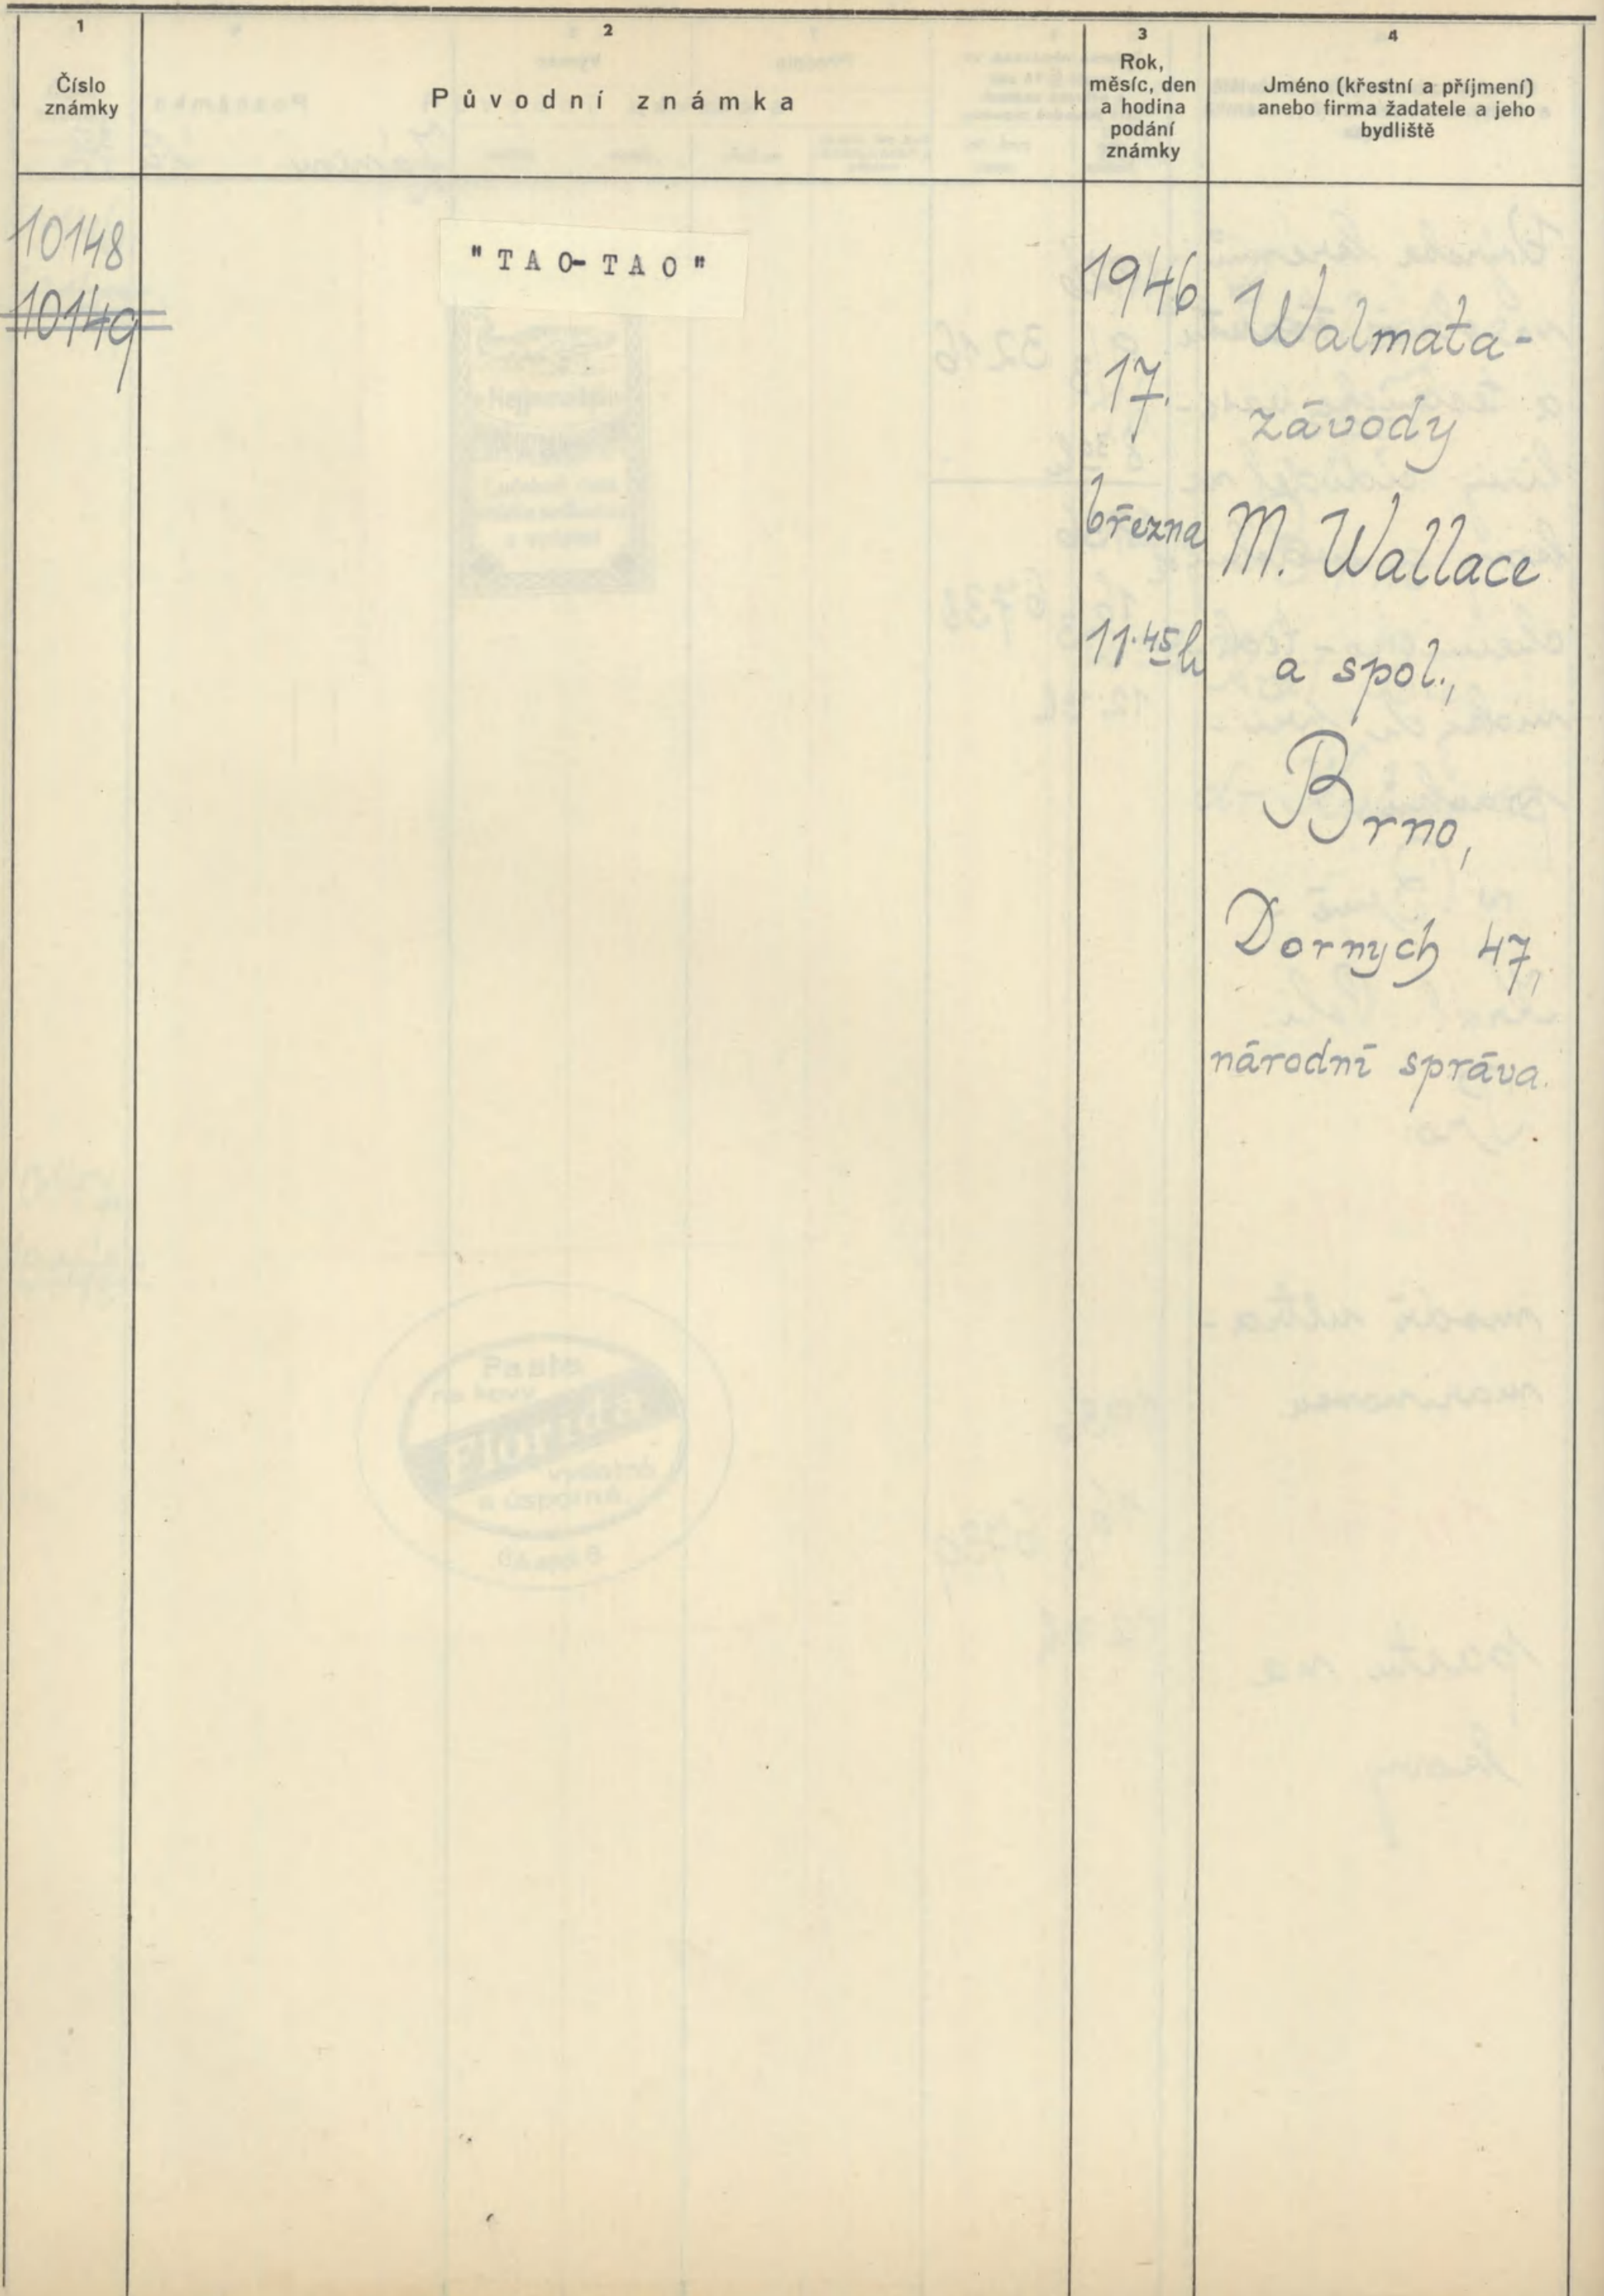 1
Číslo
známky
2
Původní známka
3
Rok,
měsíc, den
a hodina
podání
známky
4
Jméno (křestní a příjmení)
anebo firma žadatele a jeho
bydliště
10148
10149
"TAO-TAO"
1946
17.
března
11.45 h
Walmata-
závody
M. Wallace
a spol.,
Brno,
Dornych 47,
národní správa.